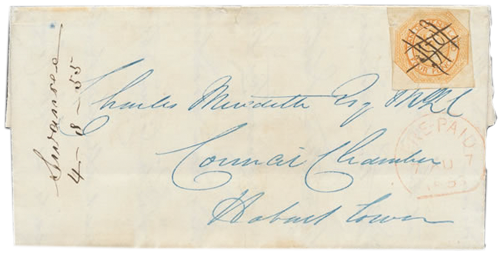 Swansea
4-8-55
Charles Meredith Esq MLC
Council Chamber
Hobart Town
PREPAID
7
AU